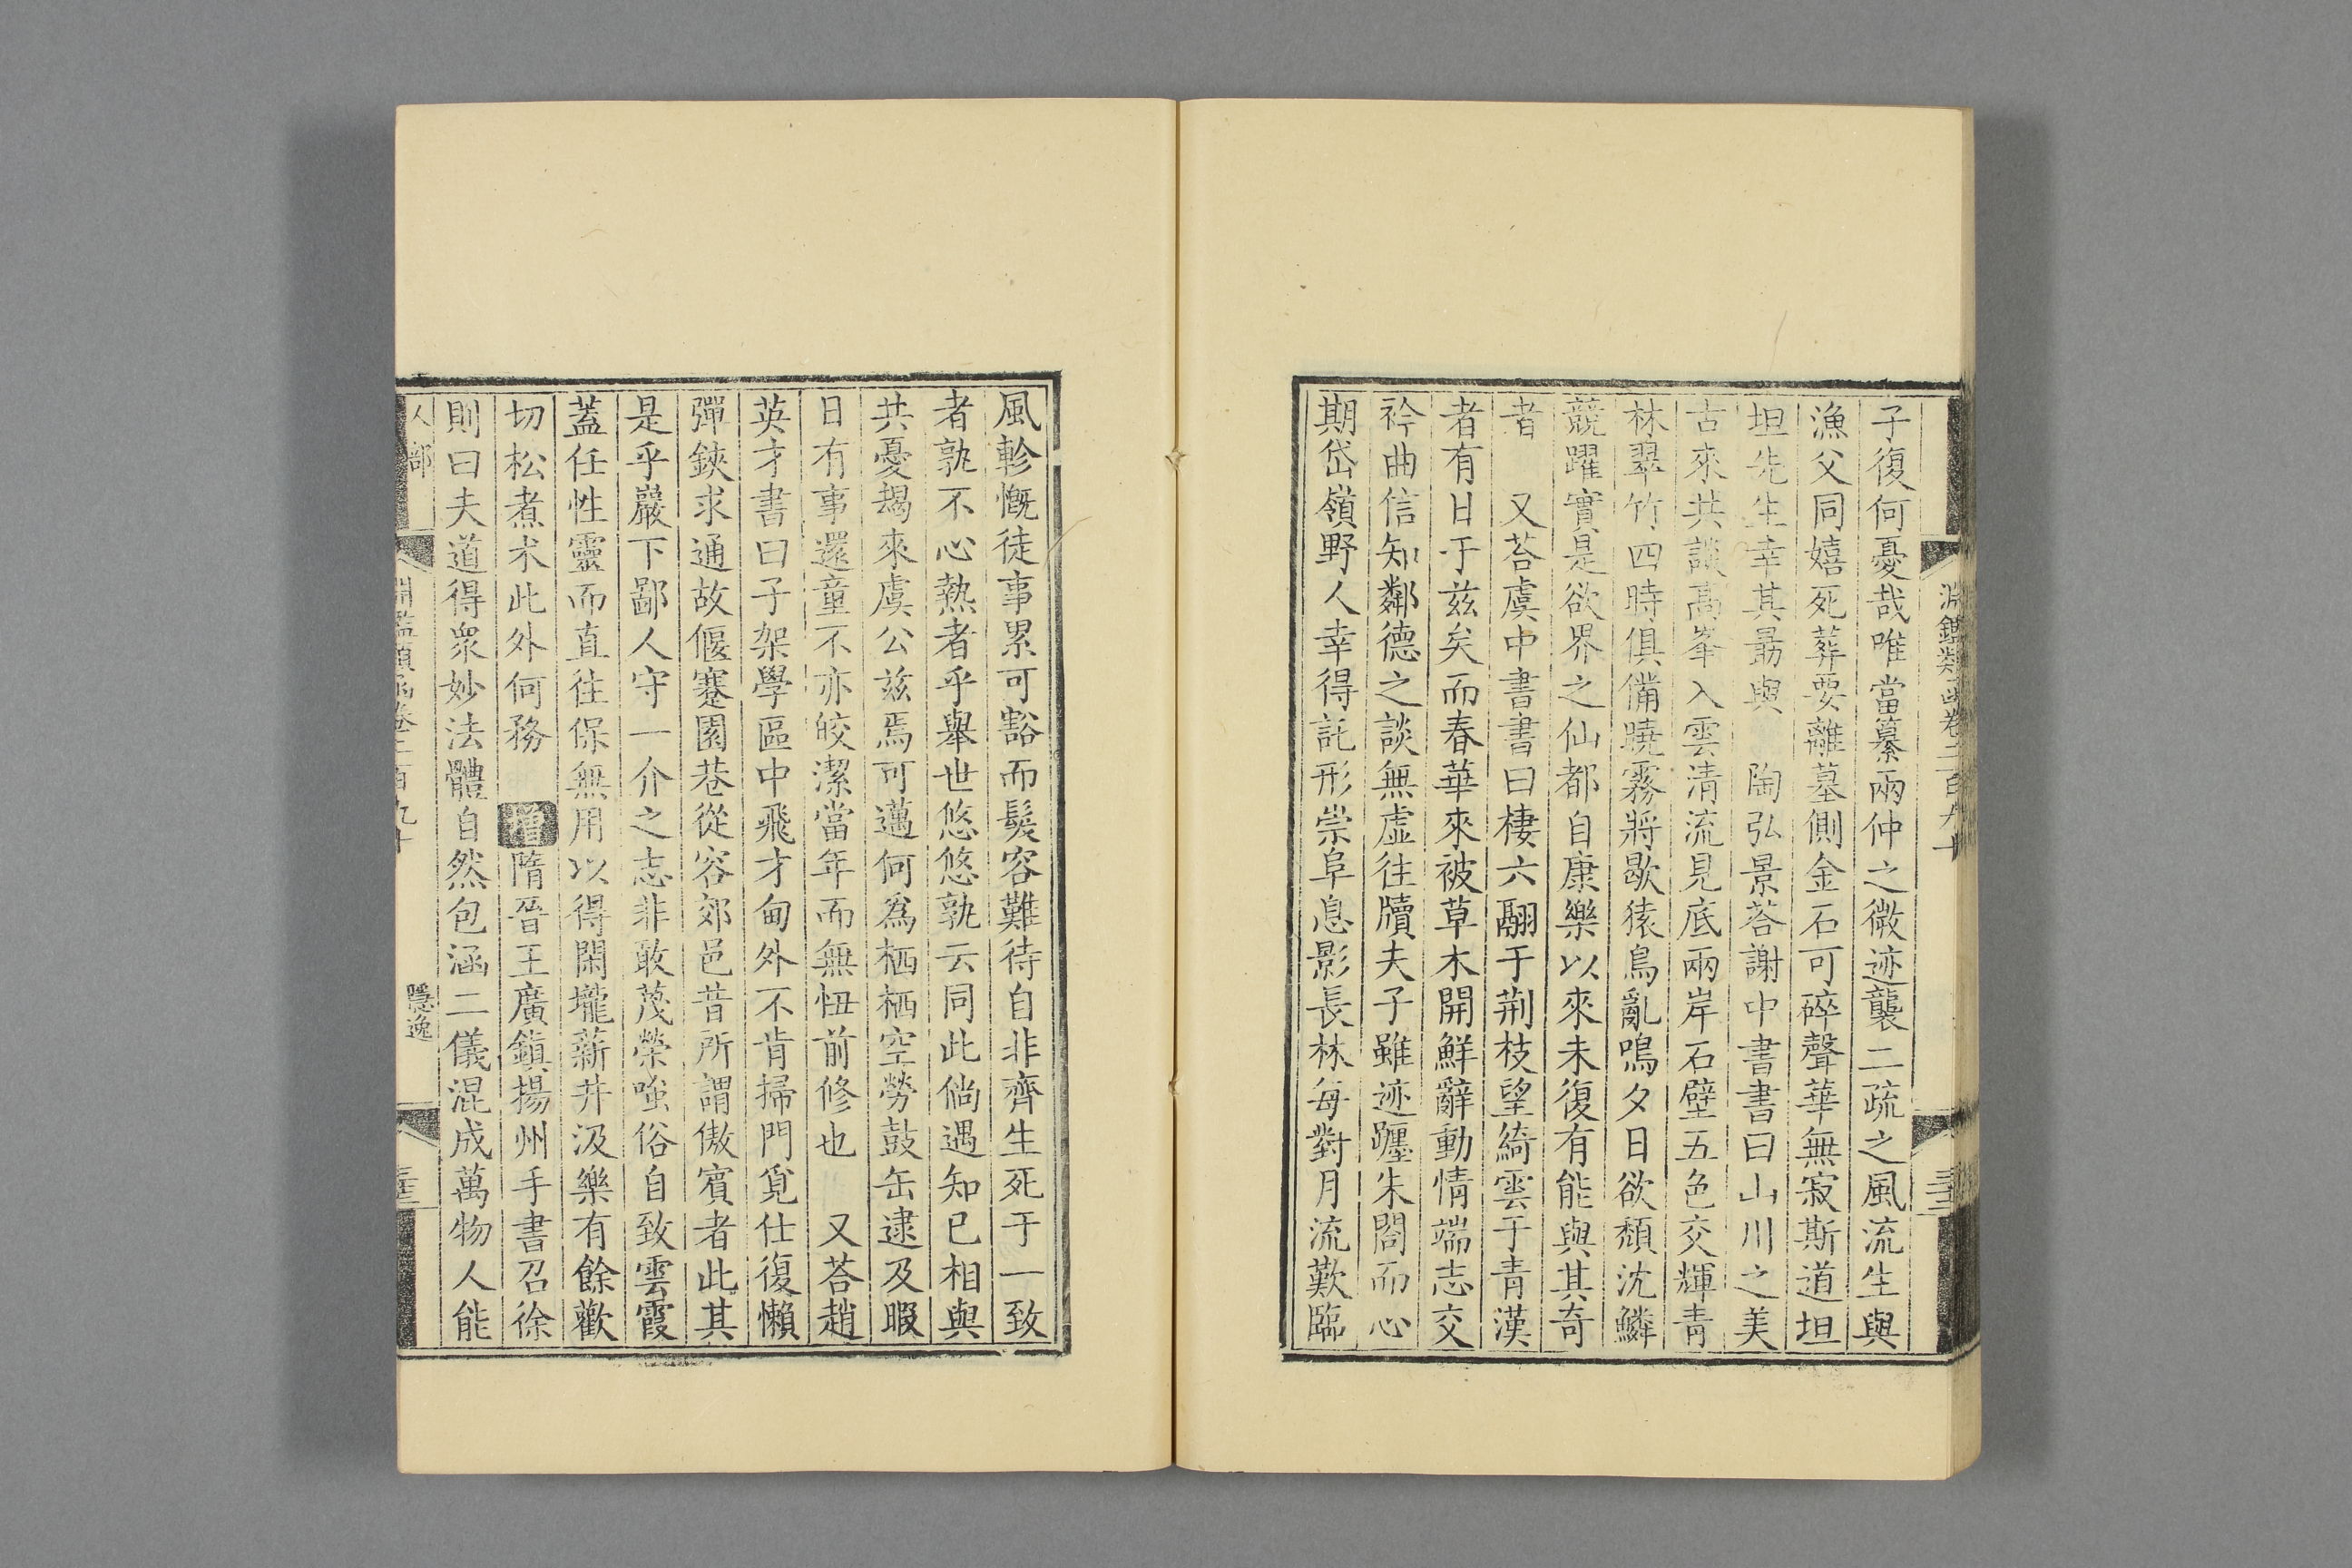 淵鑑類函卷二百九十
子復何憂哉唯當纂兩仲之微迹襲二疏之風流生與
漁父同嬉死葬要離墓側金石可碎聲華無寂斯道坦
坦先生幸其勗與　陶弘景荅謝中書書曰山川之美
古來共談高峯入雲清流見底兩岸石壁五色交輝青
林翠竹四時俱備曉霧將歇猿鳥亂鳴夕日欲頽沈鱗
競躍實是欲界之仙都自康樂以來未復有能與其奇
者　又荅虞中書書曰棲六翮于荆枝望綺雲于青漢
者有日于兹矣而春華來被草木開鮮辭動情端志交
衿曲信知鄰德之談無虛往牘夫子雖迹躔朱閤而心
期岱嶺野人幸得託形崇阜息影長林每對月流歎臨
風軫慨徒事累可豁而髮容難待自非齊生死于一致
者孰不心熱者乎舉世悠悠孰云同此倘遇知已相與
共憂朅來虞公兹焉可邁何爲栖栖空勞鼓缶逮及暇
日有事還童不亦皎潔當年而無忸前修也　又荅趙
英才書曰子架學區中飛才甸外不肯掃門覓仕復懶
彈鋏求通故偃蹇園巷從容郊邑昔所謂傲賓者此其
是乎巖下鄙人守一介之志非敢蔑榮嗤俗自致雲霞
蓋任性靈而直往保無用以得閑壠薪井汲樂有餘歡
切松煮朮此外何務　增隋晉王廣鎮揚州手書召徐
則曰夫道得衆妙法體自然包涵二儀混成萬物人能
人部
淵鑑類函卷二百九十
隱逸